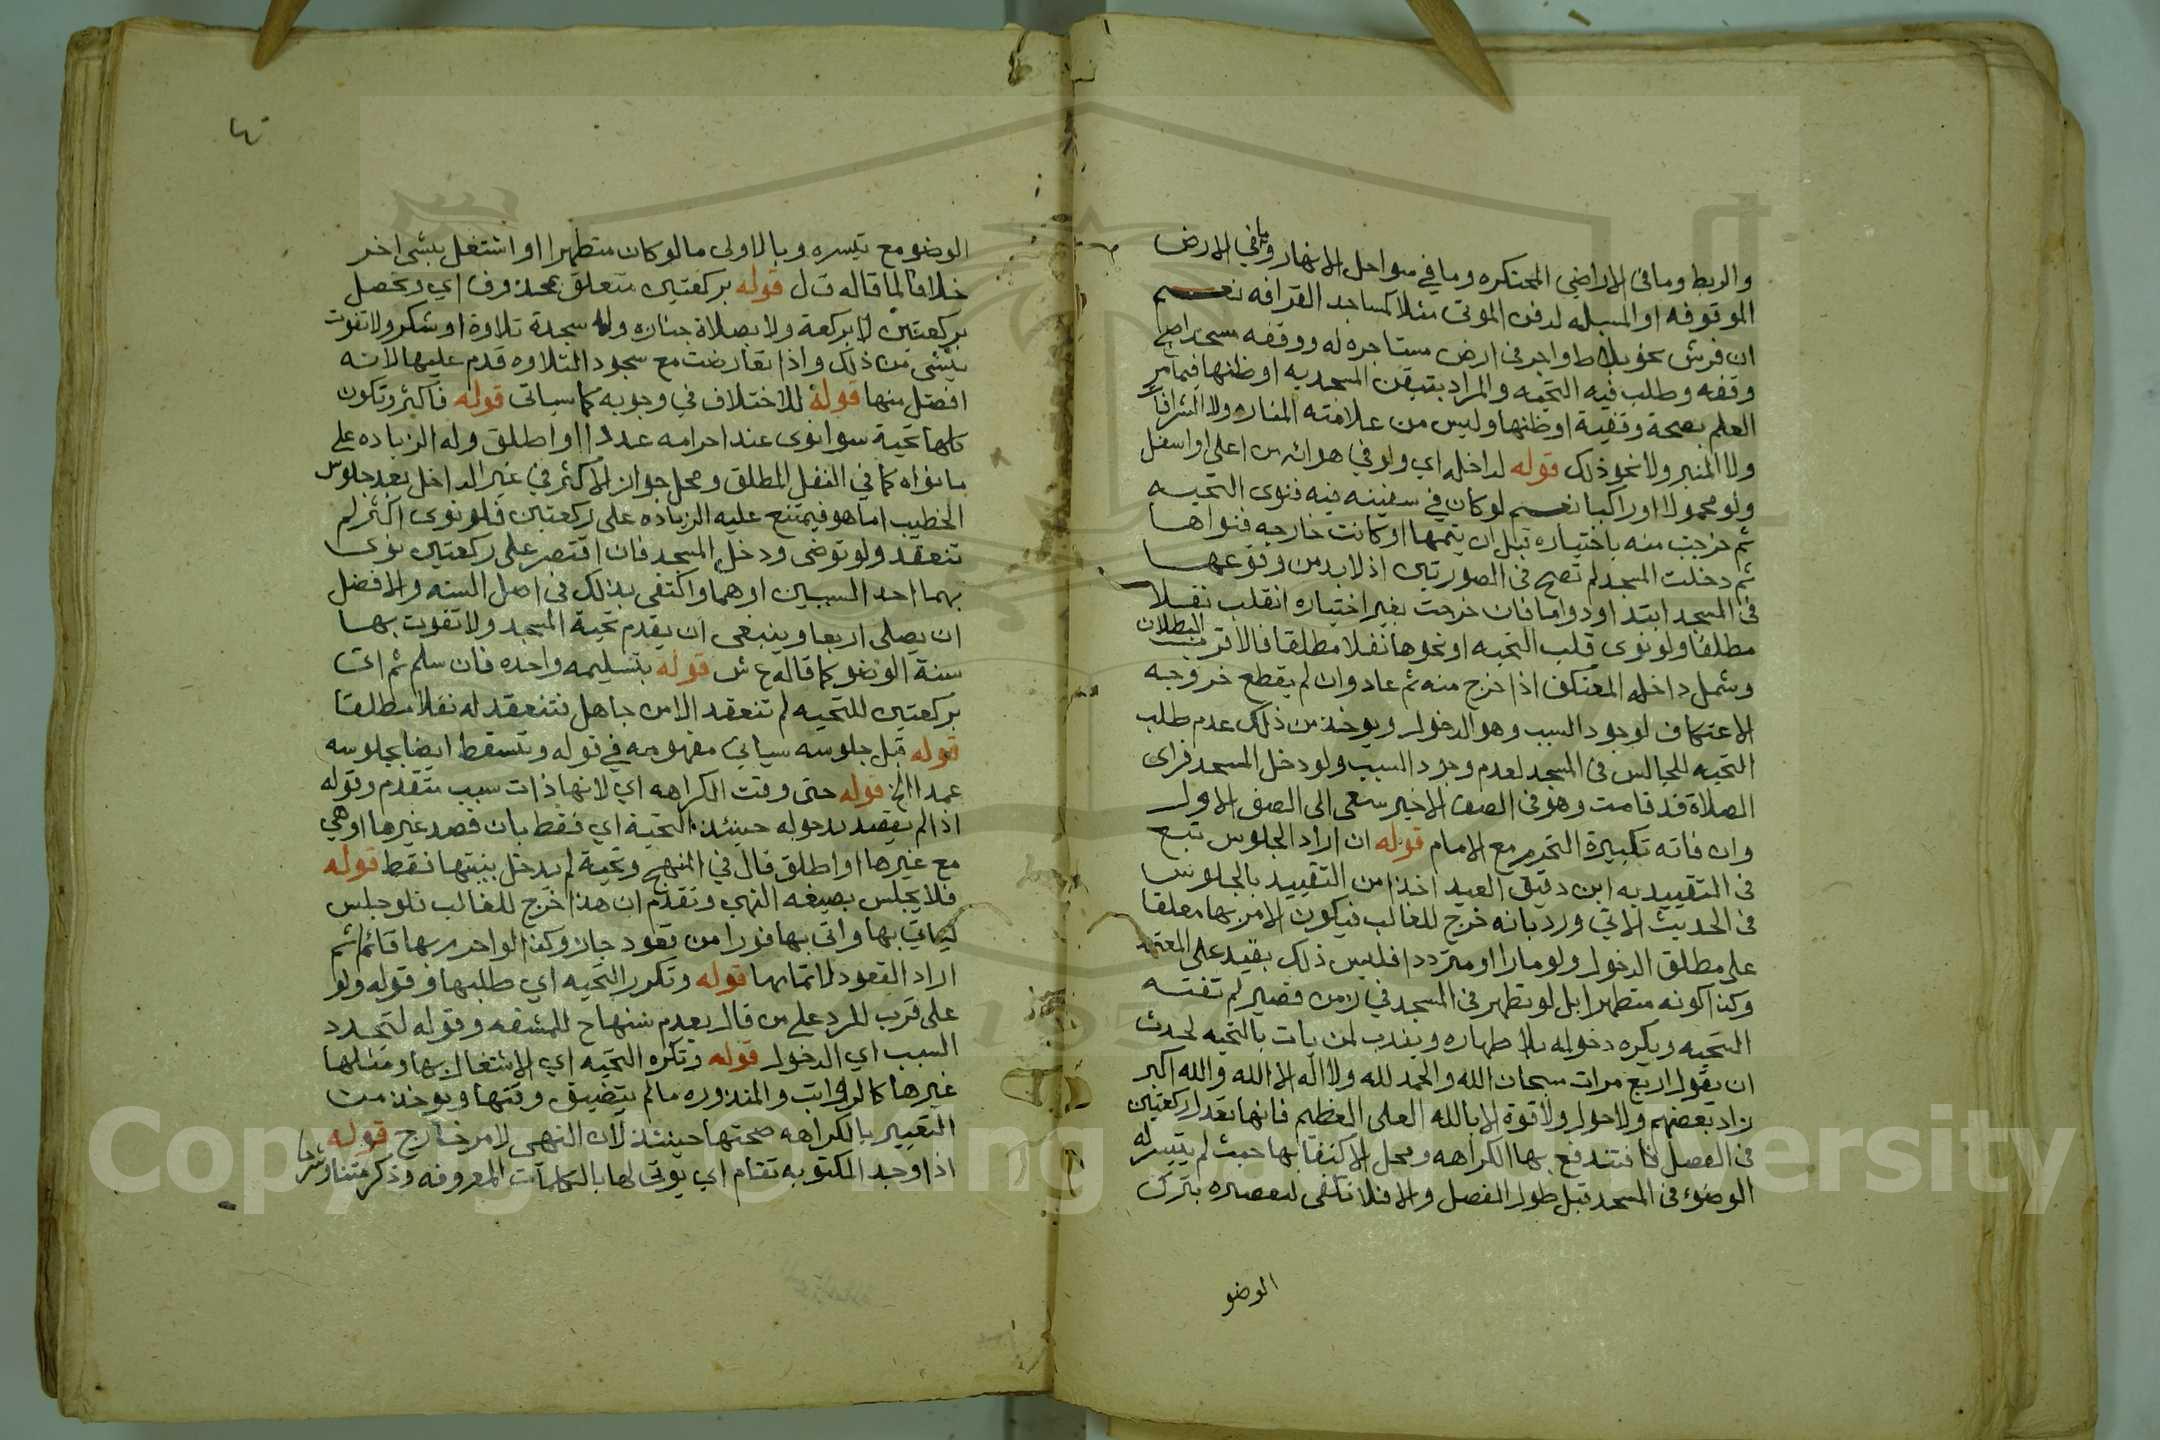 والربط وما في الاراضي المحتكره وما في سواحل الانهار وما في الارض
الموقوفه او المسبله لدفن الموتى مثلا كمساجد القرافه نعم
ان فرش نحو بلاط واجر في ارض مستاجره له ووقفه مسجدا صح
وقفه وطلب فيه التحيه والمراد بتيقن المسجديه او ظنها فيما مر
العلم بصحة وقفية او ظنها وليس من علامته المناره ولا الشرافات
ولا المنبر ولا نحو ذلك قوله لداخله اي ولو في هوائه من اعلى او اسفل
ولو محمولا او راكبا نعم لو كان في سفينه فيه فنوى التحيه
ثم خرجت منه باختياره قبل ان يتمها او كانت خارجه فنواها
ثم دخلت المسجد لم تصح في الصورتين اذ لا بد من وقوعها
في المسجد ابتدا ودواما فان خرجت بغير اختياره انقلبت نفلا
مطلقا ولو نوى قلب التحيه او نحوها نفلا مطلقا فالاقرب البطلان
وشمل داخله المعتكف اذا خرج منه ثم عاد وان لم يقطع خروجه
الاعتكاف لوجود السبب وهو الدخول ويوخذ من ذلك عدم طلب
التحيه للجالس في المسجد لعدم وجود السبب ولو دخل المسجد فراى
الصلاة قد قامت وهو في الصف الاخير سعى الى الصف الاول
وان فاته تكبيرة التحرم مع الامام قوله ان اراد الجلوس تبع
في التقييد به ابن دقيق العيد اخذا من التقييد بالجلوس
في الحديث الاتي ورد بانه خرج للغالب فيكون الامر بها معلقا
على مطلق الدخول ولو مارا او مترددا فليس ذلك بقيد على المعتمد
وكذا كونه متطهرا بل لو تطهر في المسجد في زمن قصير لم تفته
التحيه ويكره دخوله بلا طهاره ويندب لمن يات بالتحيه لحدث
ان يقول اربع مرات سبحان الله والحمد لله ولا اله الا الله والله اكبر
زاد بعضهم ولا حول ولا قوة الا بالله العلي العظيم فانها تعدل ركعتين
في الفصل فتندفع بها الكراهه ومحل الاكتفا بها حيث لم يتيسر له
الوضوء في المسجد قبل طول الفصل والا فلا تكفي لتقصيره بترك
الوضو
الوضو مع تيسره وبالاولى ما لو كان متطهرا او اشتغل بشى اخر
خلافا لما قاله ق ل قوله بركعتين متعلق بمحذوف اي وتحصل
بركعتين لا بركعة ولا بصلاة جنازه ولا سجدة تلاوة او شكر ولا تفوت
بشى من ذلك واذا تعارضت مع سجود التلاوه قدم عليها لانه
افضل منها قوله للاختلاف في وجوبه كما سياتي قوله فاكثر وتكون
كلها تحية سوا نوى عند احرامه عددا او اطلق وله الزياده على
ما نواه كما في النفل المطلق ومحل جواز الاكثر في غير الداخل بعد جلوس
الخطيب اما هو فيمتنع عليه الزياده على ركعتين فلو نوى اكثر لم
تنعقد ولو توضى ودخل المسجد فان اقتصر على ركعتين نوى
بهما احد السببين او هما واكتفى بذلك في اصل السنه والافضل
ان يصلى اربعا وينبغي ان يقدم تحية المسجد ولا تفوت بها
سنة الوضو كما قاله ع ش قوله بتسليمه واحده فان سلم ثم اتى
بركعتين للتحيه لم تنعقد الا من جاهل فتنعقد له نفلا مطلقا
قوله قبل جلوسه سياتي مفهومه في قوله وتسقط ايضا بجلوسه
عمدا الخ قوله حتى وقت الكراهه اي لانها ذات سبب متقدم وقوله
اذا لم يقصد بدخوله حينئذ التحية اي فقط بان قصد غيرها او هي
مع غيرها او اطلق قال في المنهج وتحية لم يدخل بنيتها فقط قوله
فلا يجلس بصيغه النهي وتقدم ان هذا خرج للغالب فلو جلس
لياتي بها واتى بها فورا من قعود جاز وكذا لو احرم بها قائما ثم
اراد القعود لاتمامها قوله وتكرر التحيه اي طلبها وقوله ولو
على قرب للرد على من قال بعدم سنها ح للمشقه وقوله لتجدد
السبب اي الدخول قوله وتكره التحيه اي الاشتغال بها ومثلها
غيرها كالرواتب والمنذوره ما لم يتضيق وقتها ويوخذ من
التعبير بالكراهه صحتها حينئذ لان النهي لامر خارج قوله
اذا وجد المكتوبه تقام اي يوتى لها بالكلمات المعروفه وذكر متنا وشرحا
Copyright © King Saud University
1957